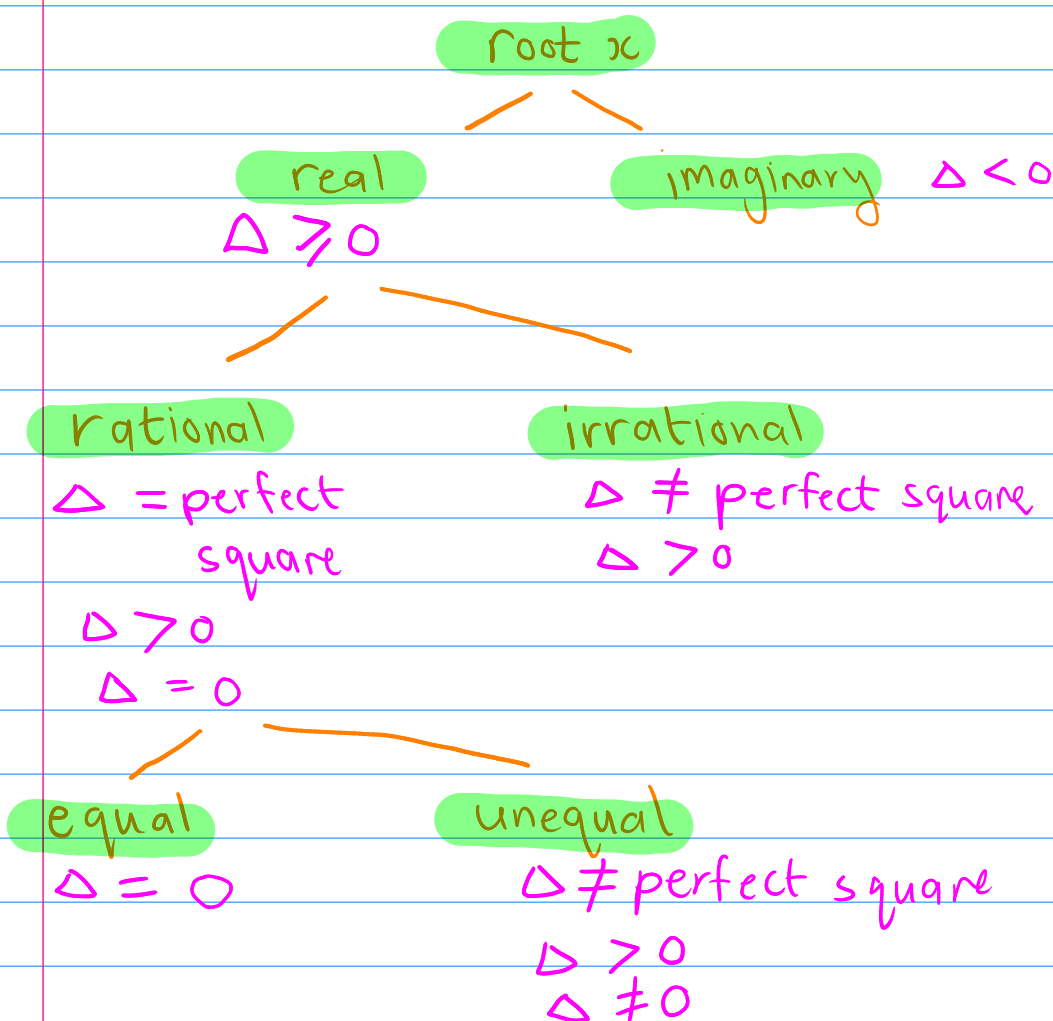 root x
real
imaginary Δ < 0
Δ ⩾ 0
rational
irrational
Δ = perfect
square
Δ ≠ perfect square
Δ > 0
Δ > 0
Δ = 0
equal
unequal
Δ = 0
Δ ≠ perfect square
Δ > 0
Δ ≠ 0